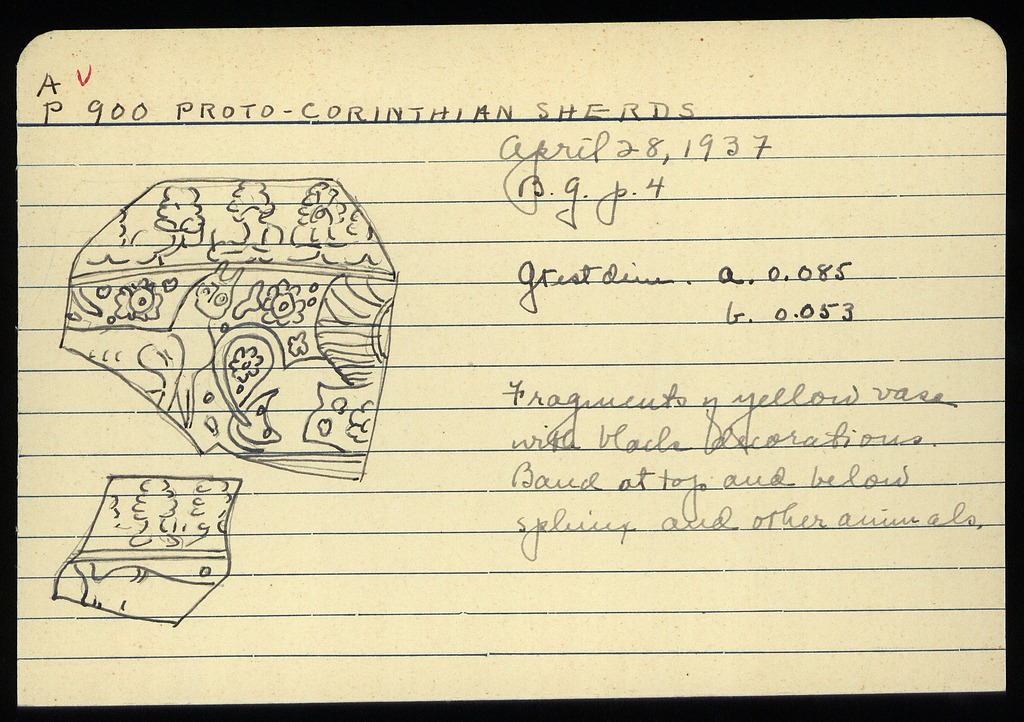 A V
P 900 PROTO-CORINTHIAN SHERDS
April 28, 1937
B. g. p. 4
Grest dim. a. 0.085
b. 0.053
Fragments of yellow vase
with black decorations.
Band at top and below
sphinx and other animals.